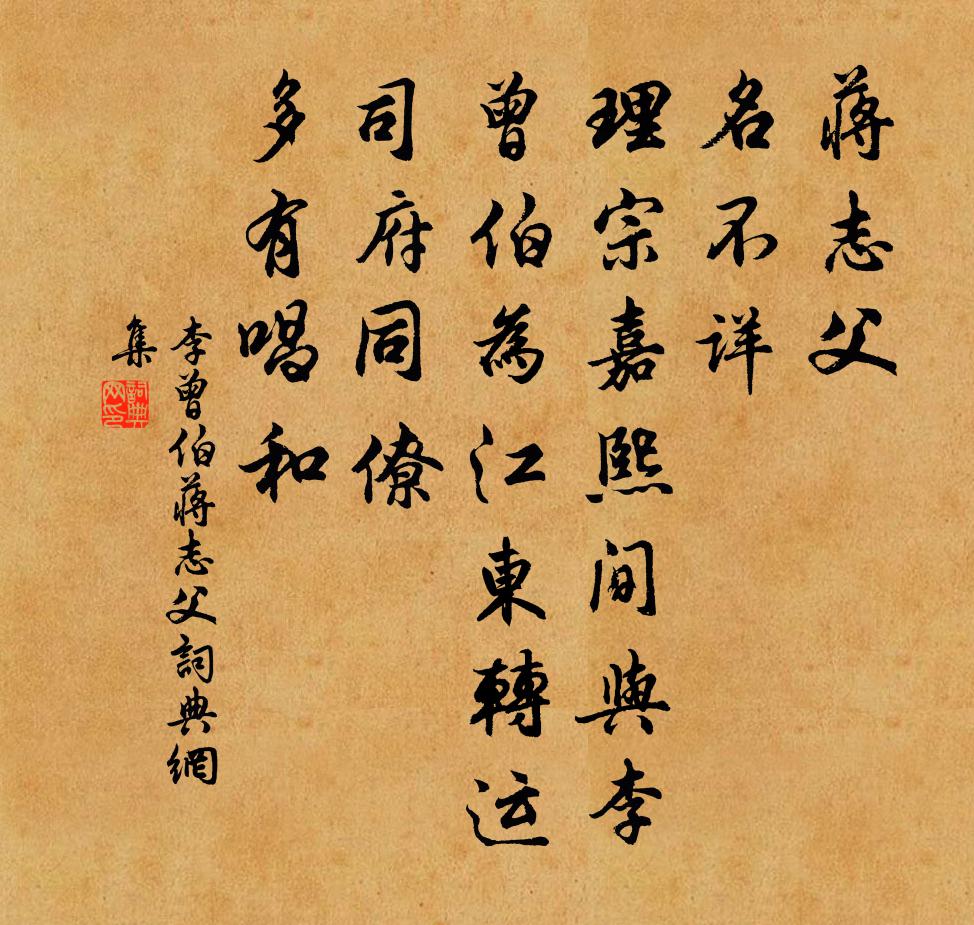 蔣志父
名不详
理宗嘉熙间與李
曾伯為江東轉运
司府同僚
多有唱和
李曾伯蔣志父詞典網
集
詞典
网印